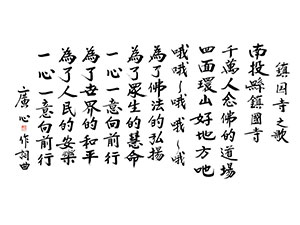 鎮國寺之歌
南投縣鎮國寺
千萬人念佛的道場
四面環山好地方吔
哦哦~哦哦~哦
為了佛法的弘揚
為了眾生的慧命
一心一意向前行
為了世界的和平
為了人民的安樂
一心一意向前行
廣心作詞曲